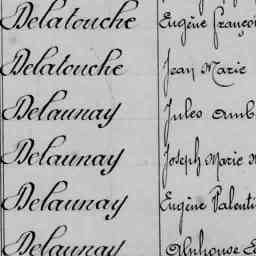 Delatouche Eugène Françoi
Delatouche Jean Marie
Delaunay Jules Amb
Delaunay Joseph Marie
Delaunay Eugène Valenti
Delaunay Alphonse E